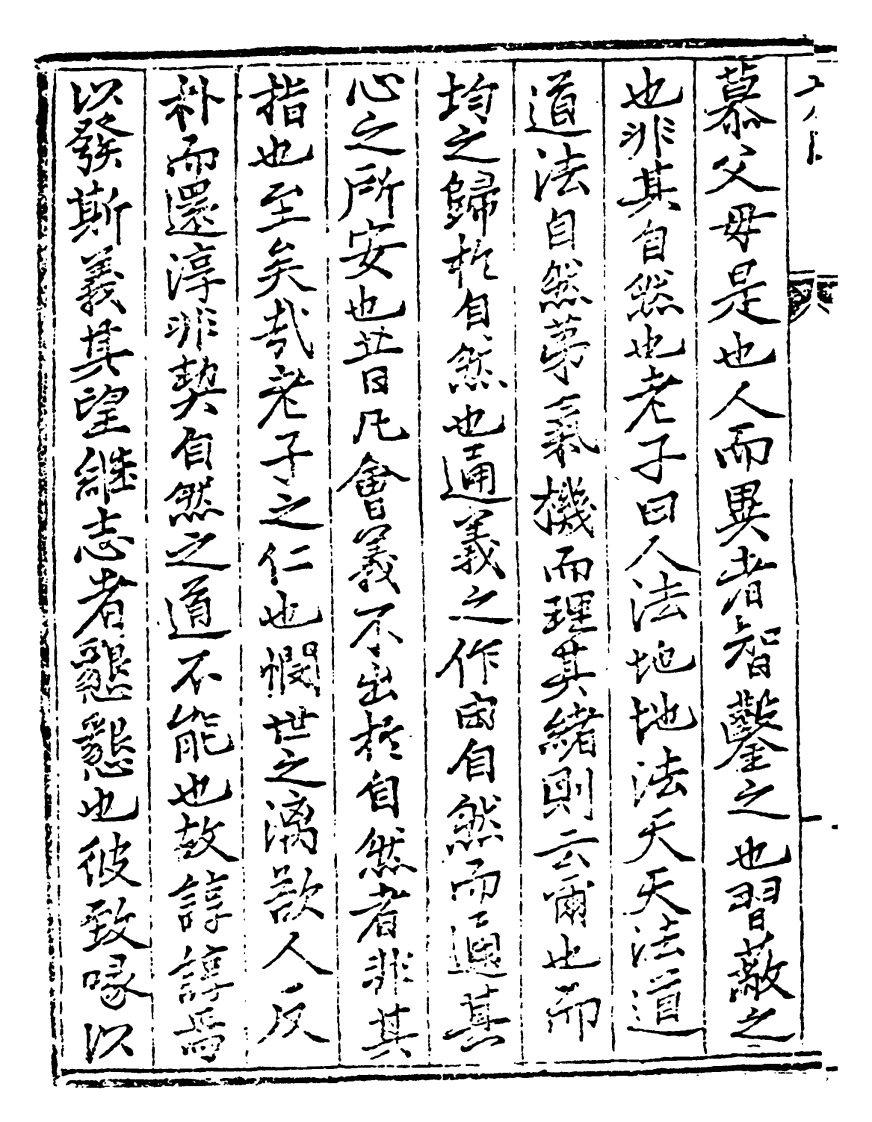 慕父母是也人而異者智鑿之也習蔽之
也非其自然也老子曰人法地地法天天法道
道法自然第氣機而理其緒則云爾也而
均之歸於自然也通義之作由自然而適其
心之所安也昔凡會義不出於自然者非其
指也至矣哉老子之仁也憫世之漓欲人反
朴而還淳非契自然之道不能也故諄諄焉
以發斯義其望繼志者懇懇也彼致喙以